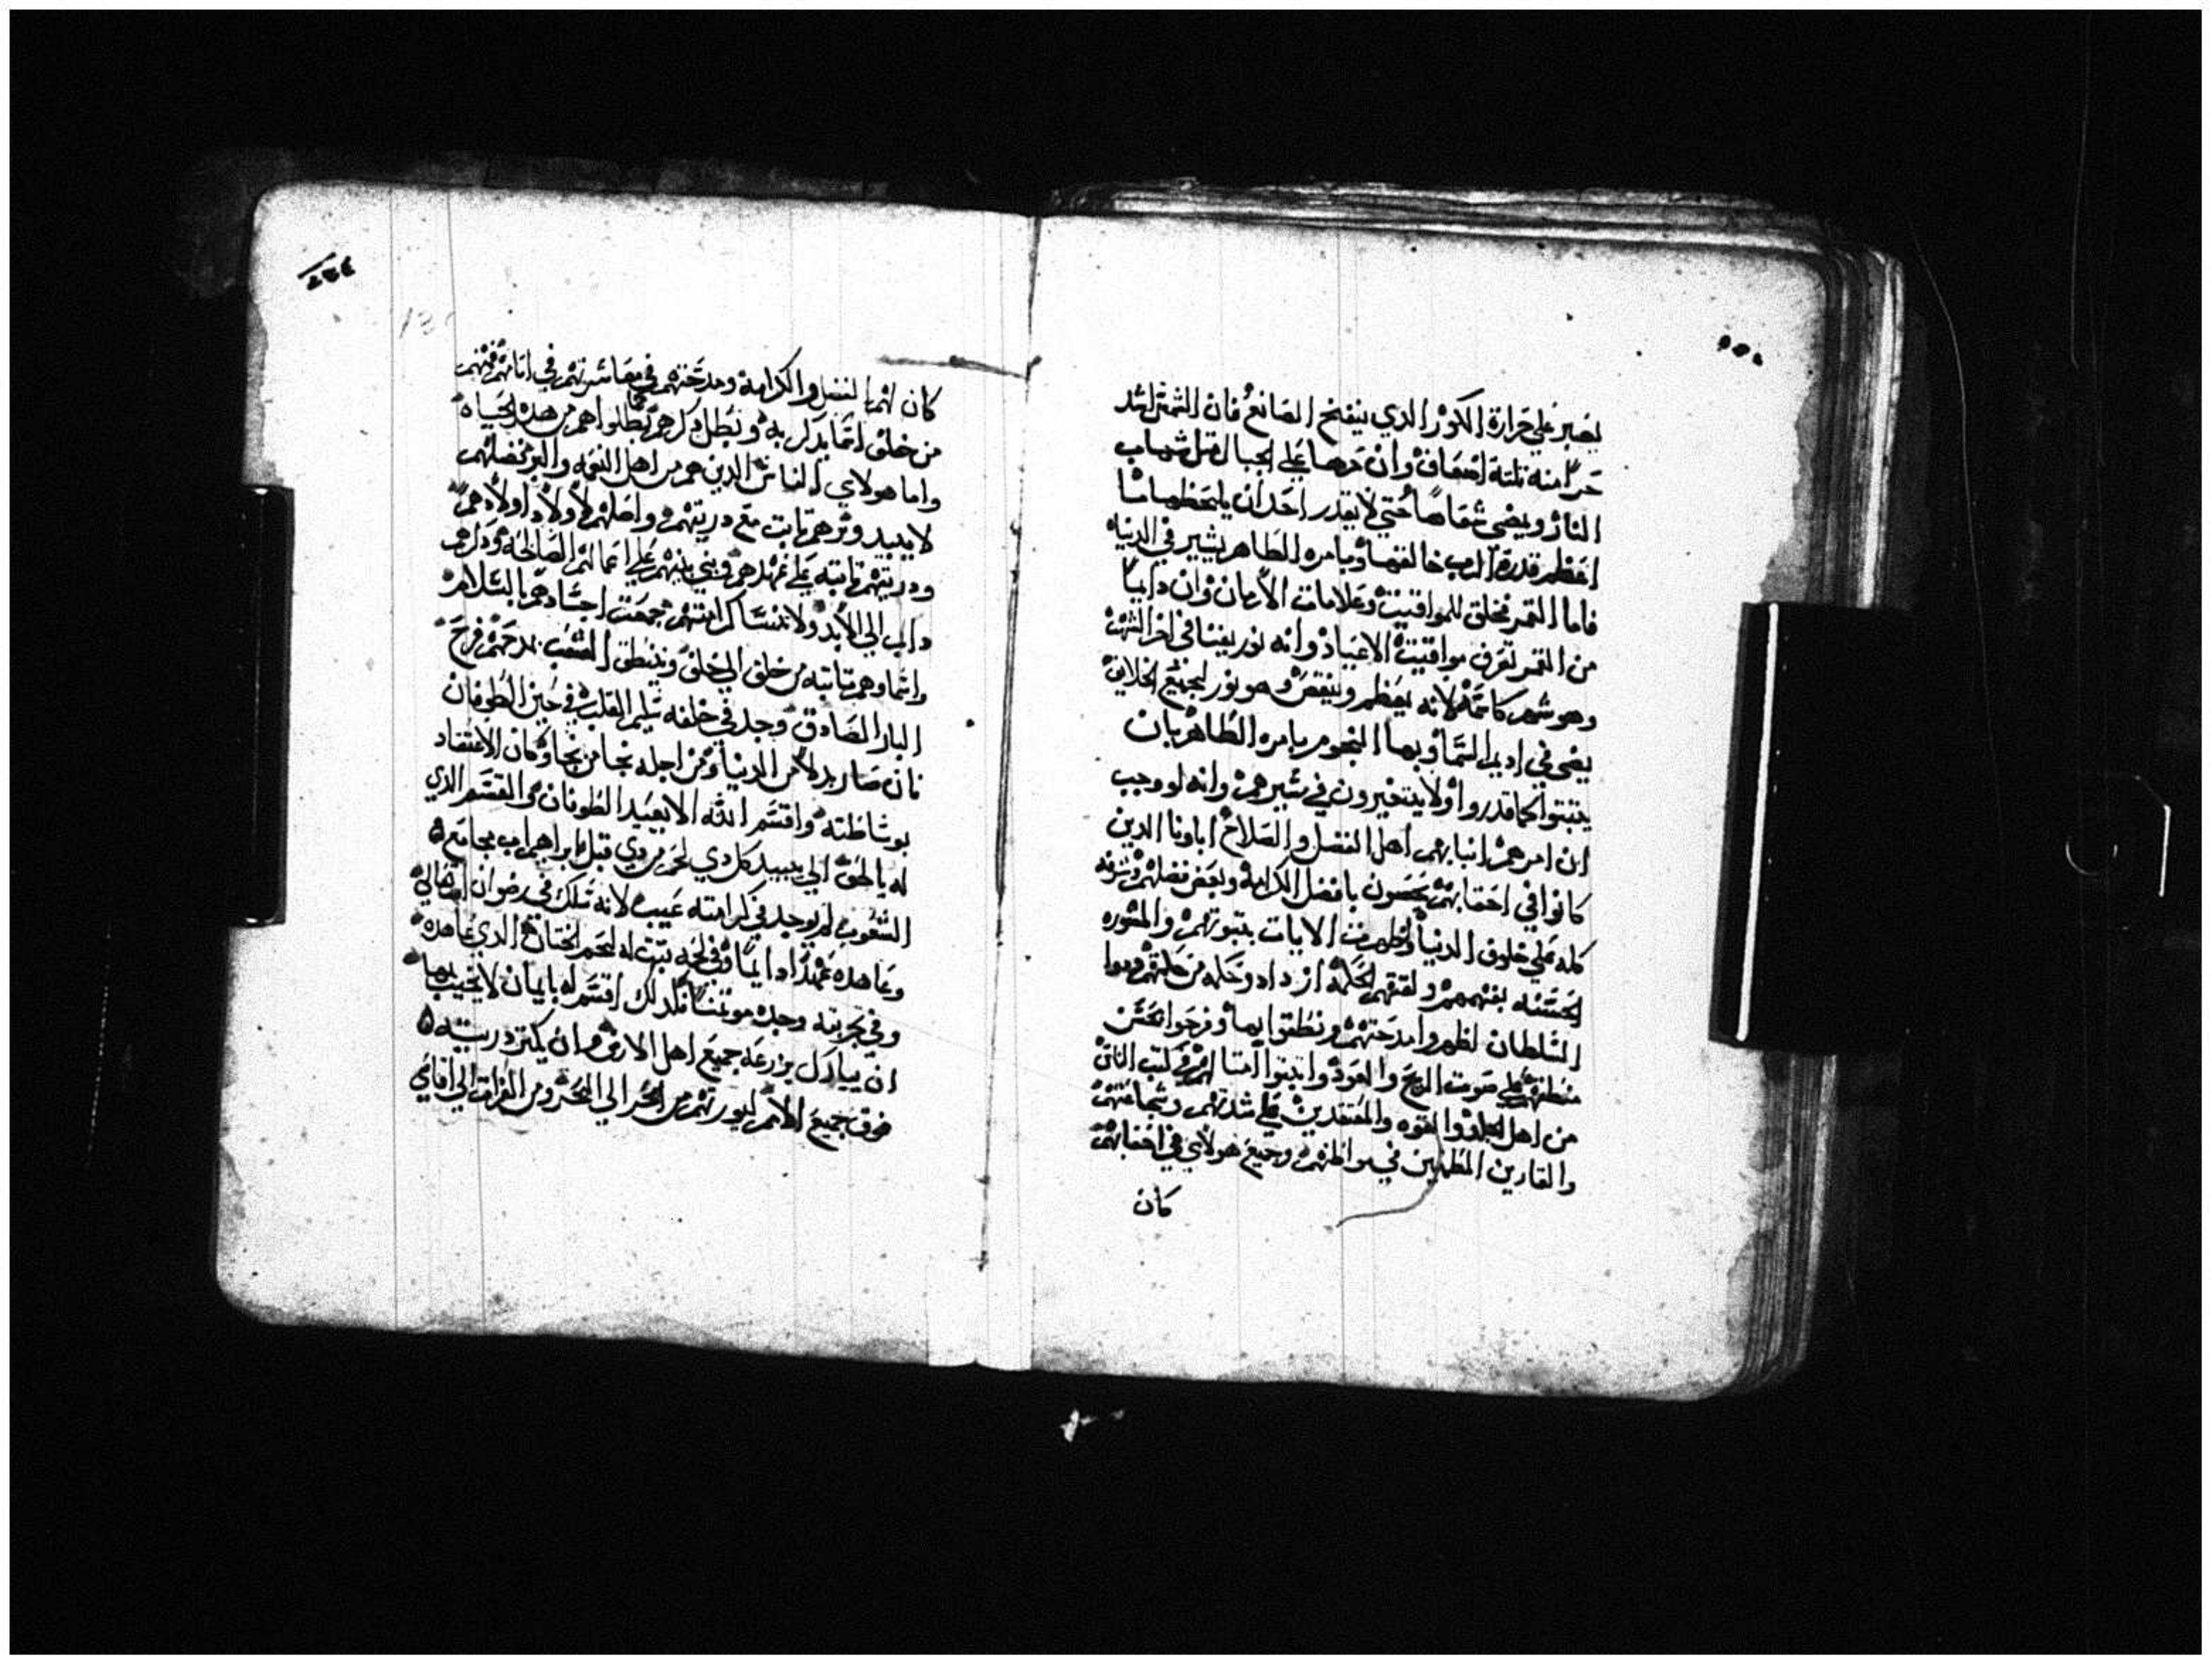 يصبر علي حرارة الكور الدي ينفخ الصانع فان الشمس اشد
حرا منه تلتة اضعاف وان حرها علي الجبال مثل شهاب
النار ويضي شعاعها حتي لا يقدر احد ان يلحظها ما
اعظم قدرة الرب خالقها وبامره الطاهر يشير في الدنيا
فاما القمر فخلق للمواقيت وعلامات الازمان وان دايبا
من القمر تعرف مواقيت الاعياد وانه نور يفنا في اخر الشهر
وهو شهر كاسمه لانه يعظم وينقص وهو نور لجميع الخلايق
يضي في اديم السما وبها النجوم بامره الطاهر بان
يتبتوا كما قدروا ولا يتغيرون في سيرهم وانه لو وجب
ان امرهم اهل الفضل والصلاح اباونا الدين
كانوا في احقابهم بافضل الكرامة وبعض فضلهم
كله علي خلوق الدنيا وظهرت الايات بنبوتهم والمشوره
الحسنه بفهمهم ولفقهم الحكمة ازداد وحكمه من
السلطان اظهروا مدحتهم ونطقوا بها وفرحوا بحسن
منطقهم علي صوت الريح والعود
من اهل الجلد والقوه والمعتمدين علي شدتهم وشجاعتهم
والقارين المطمين في مواطنهم وجميع هولاي في احقابهم
كان
كان لهم الفضل والكرامة ومدحتهم في معاشرتهم في ايامهم فمنهم
من خلف اسما يدكر به وبطل دكرهم كما بطلوا هم من هده الحياه
واما هولاي الناس الدين هم من اهل النعمه والبر فضلهم
لا يبيد وبرهم تابت مع دريتهم واصلهم لاولاد اولادهم
ودريتهم تابته علي عهدهم وبني بنيهم علي اعمالهم الصالحة ودكرهم
دايب الي الابد ولا تنسا كرامتهم جمعت اجسادهم بالسلام
واسماوهم تابته من خلف الي خلف وينطق الشعب بمدحهم فرح
البار الصادق وجد في خلفه سليم القلب في حين الطوفان
فان صار بدلا من الدنيا ومن اجله نجا من نجا وكان الاعتقاد
بوساطته واقسم الله الا بعيد الطوفان القسم الدي
له بالحق الي يبيد كل دي لحم من دي قبل ابراهيم اب مجامع
الشعوب لم يوجد في كرامته عيب لانه تملك في رضوان
وعاهده عهدا دايما وفي لحمه تبت له لحم الختان الدي عاهده
وفي تجربته وجد موتمنا فلدلك اقسم له بايمان لا يخيب بها
ان يبارك بزرعه جميع اهل الارض وان يكتر دريته
فوق جميع الامم ليورتهم من البحر الي البحر ومن الفرات الي اقاصي